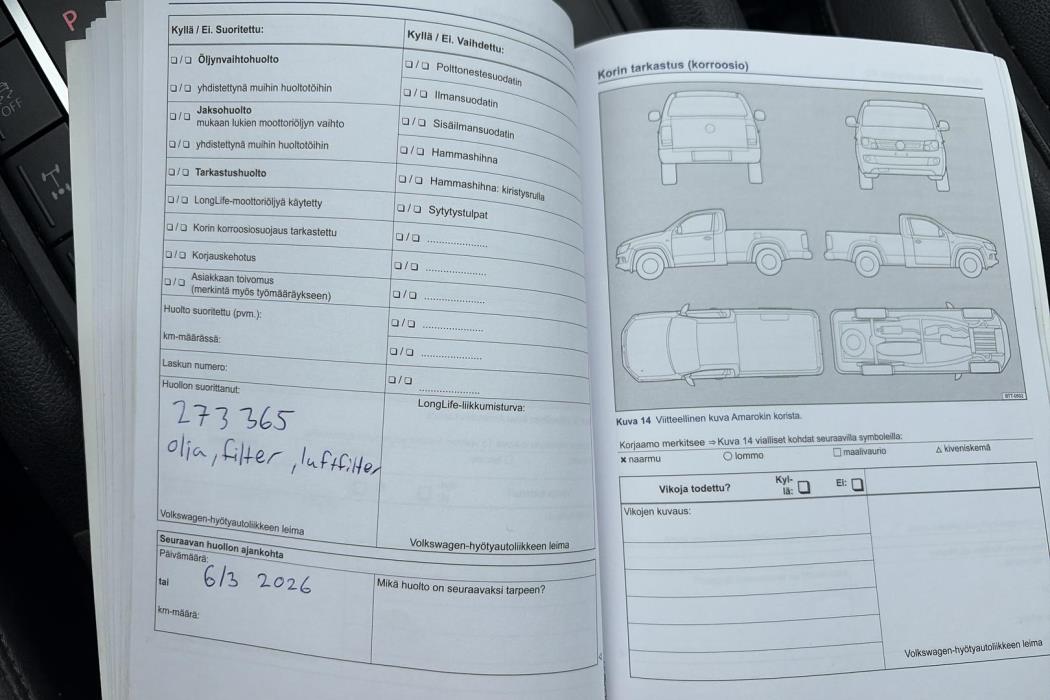 P
OFF
Kyllä / Ei. Suoritettu:
❏ / ❏ Öljynvaihtohuolto
❏ / ❏ yhdistettynä muihin huoltotöihin
❏ / ❏ Jaksohuolto
mukaan lukien moottoriöljyn vaihto
❏ / ❏ yhdistettynä muihin huoltotöihin
❏ / ❏ Tarkastushuolto
❏ / ❏ LongLife-moottoriöljyä käytetty
❏ / ❏ Korin korroosiosuojaus tarkastettu
❏ / ❏ Korjauskehotus
❏ / ❏ Asiakkaan toivomus
(merkintä myös työmääräykseen)
Huolto suoritettu (pvm.):
km-määrässä:
Laskun numero:
Huollon suorittanut:
273 365
olja, filter, luftfilter
Volkswagen-hyötyautoliikkeen leima
Kyllä / Ei. Vaihdettu:
❏ / ❏ Polttonestesuodatin
❏ / ❏ Ilmansuodatin
❏ / ❏ Sisäilmansuodatin
❏ / ❏ Hammashihna
❏ / ❏ Hammashihna: kiristysrulla
❏ / ❏ Sytytystulpat
❏ / ❏ ......................
❏ / ❏ ......................
❏ / ❏ ......................
❏ / ❏ ......................
❏ / ❏ ......................
❏ / ❏ ......................
LongLife-liikkumisturva:
Volkswagen-hyötyautoliikkeen leima
Seuraavan huollon ajankohta
Päivämäärä:
tai 6/3 2026
km-määrä:
Mikä huolto on seuraavaksi tarpeen?
Korin tarkastus (korroosio)
Kuva 14 Viitteellinen kuva Amarokin korista.
Korjaamo merkitsee ⇒ Kuva 14 vialliset kohdat seuraavilla symboleilla:
✖ naarmu ○ lommo □ maalivaurio △ kiveniskemä
Vikoja todettu? Kyl-
lä: ❏ Ei: ❏
Vikojen kuvaus:
Volkswagen-hyötyautoliikkeen leima